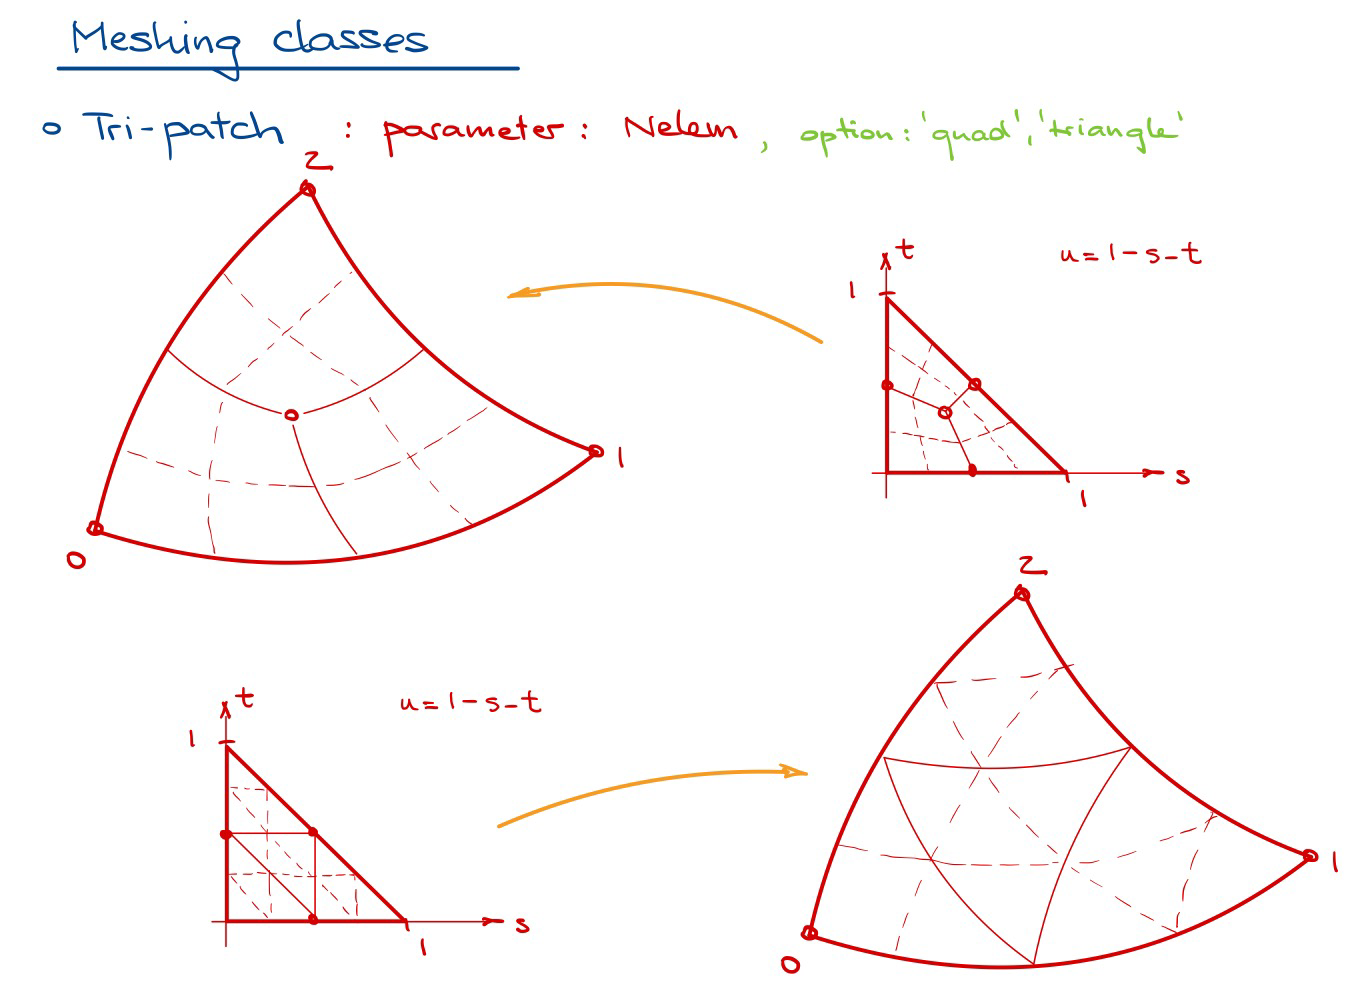 Meshing classes
o Tri-patch : parameter: Nelem, option: 'quad','triangle'
2
t
u=1-s-t
1
1
s
1
0
2
t
u=1-s-t
1
1
s
1
0